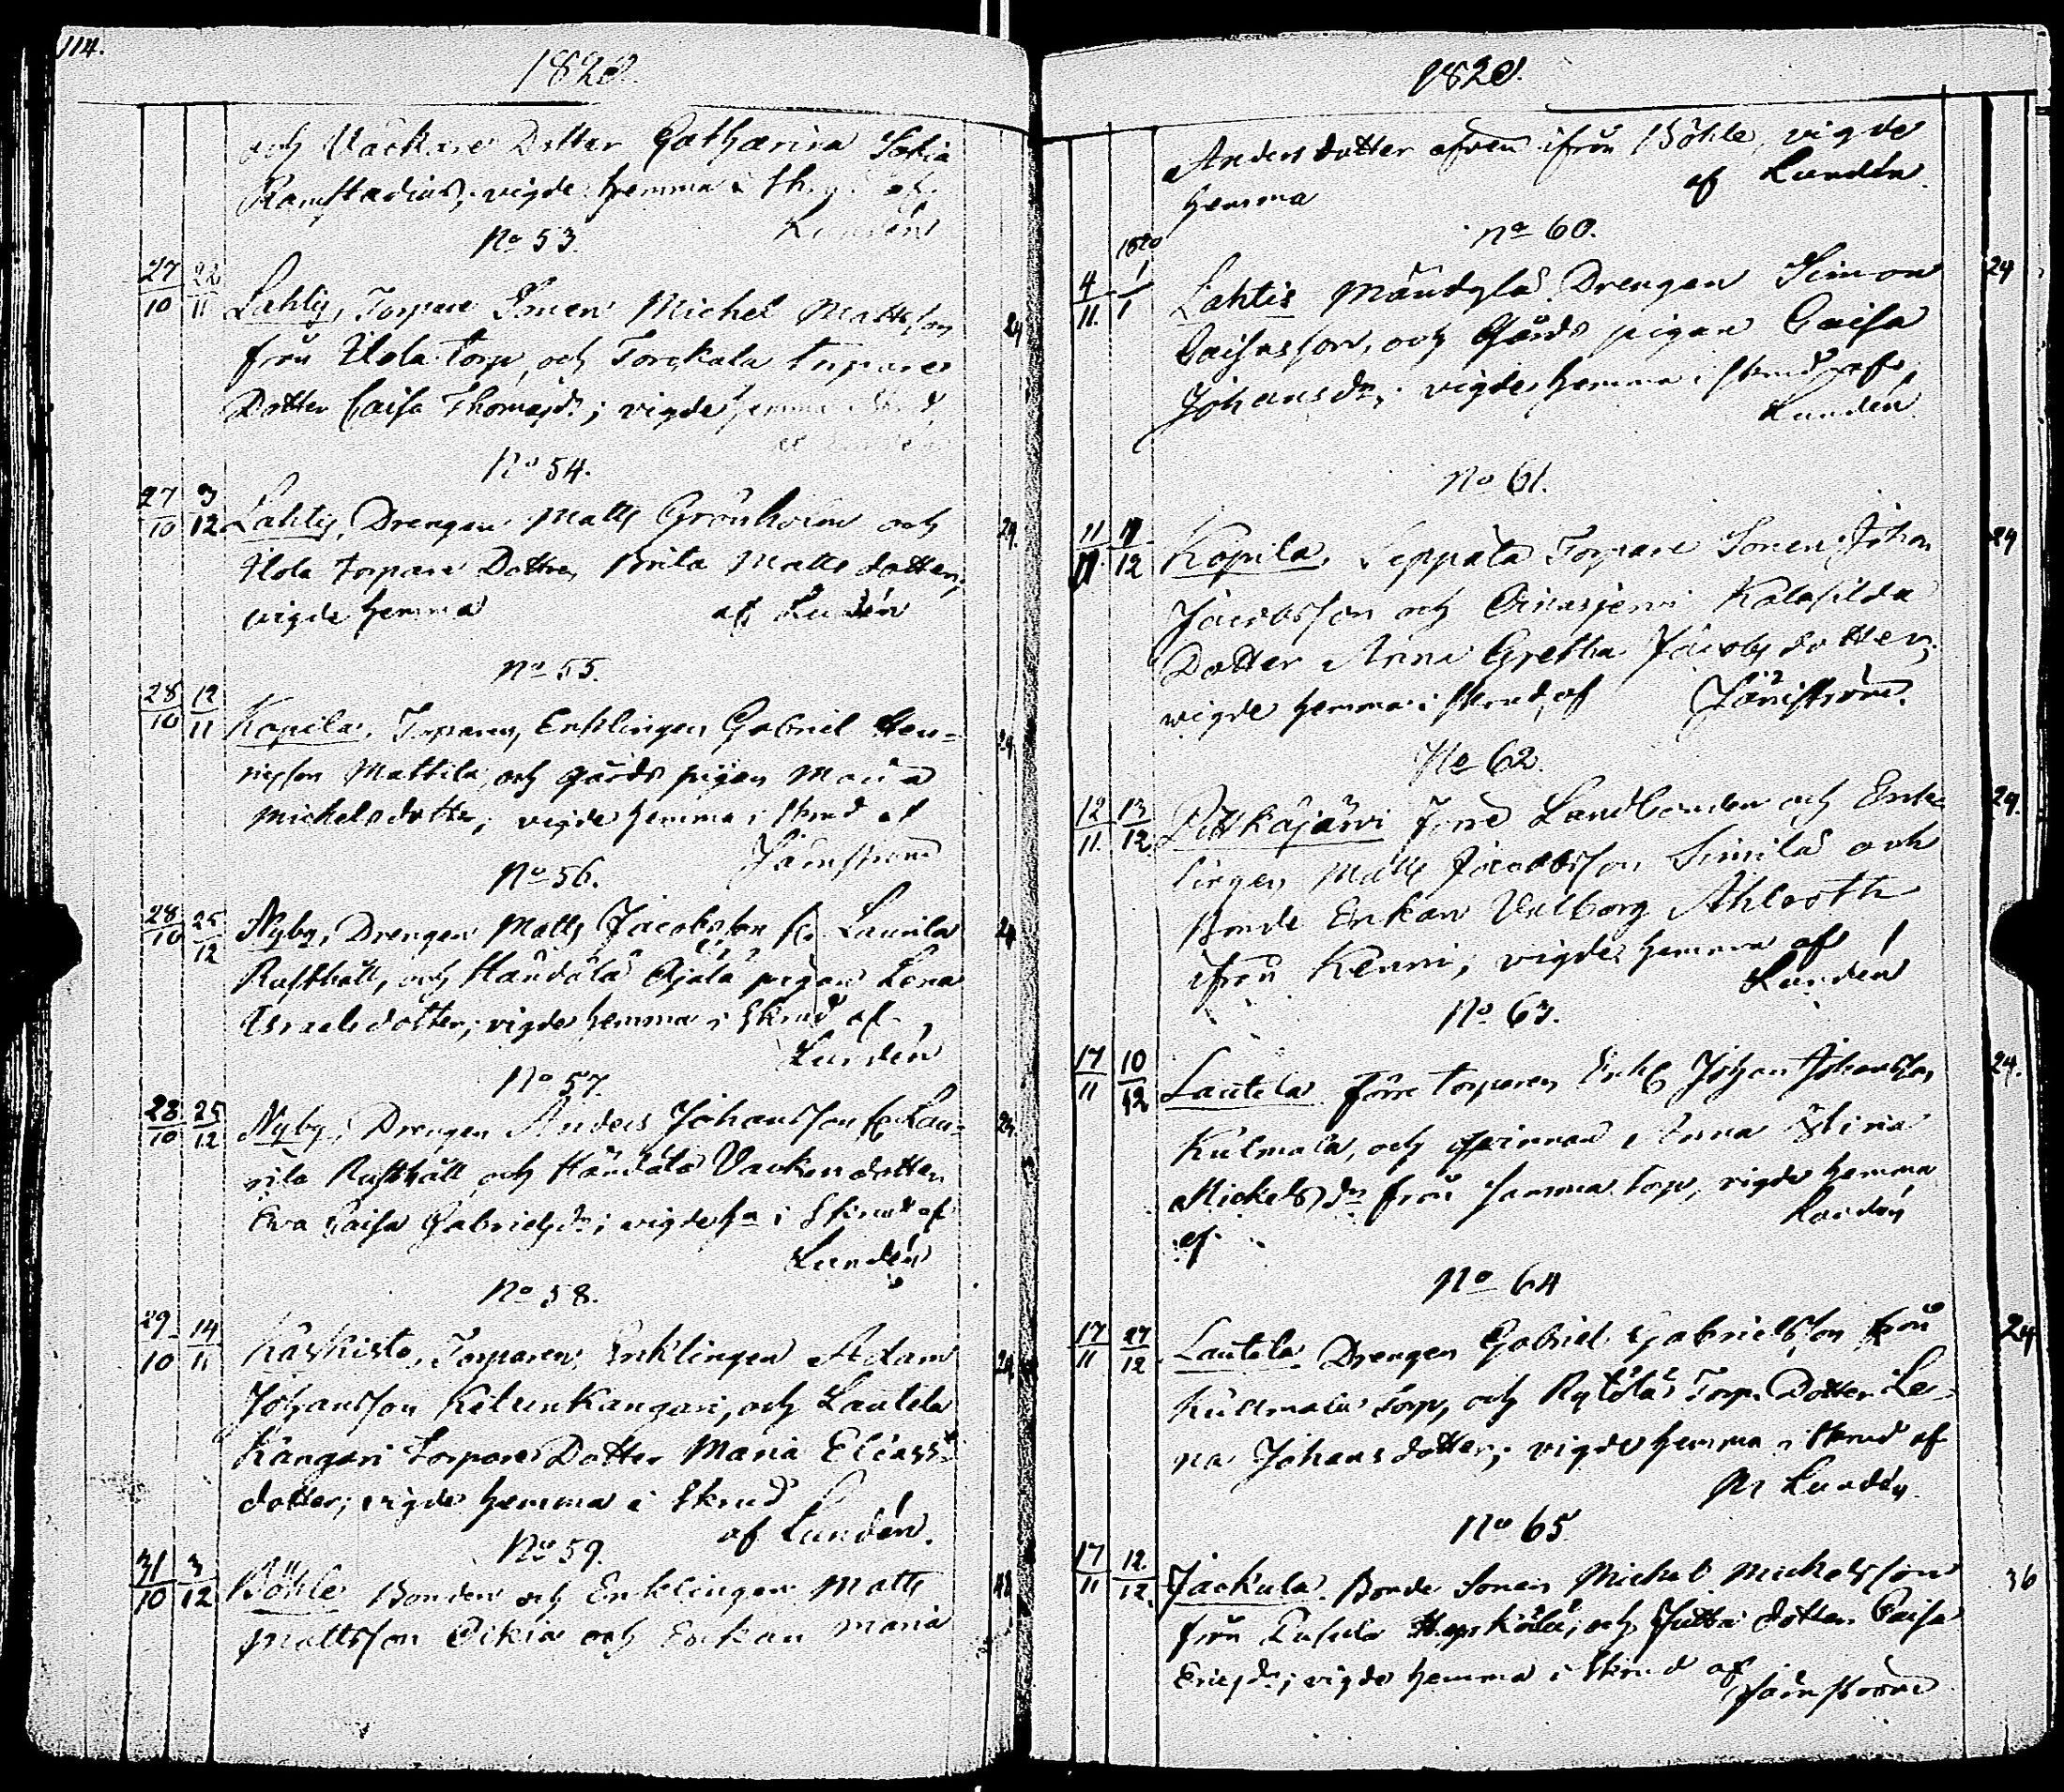 114.
1820.
och Vackare Dotter Catharina Sofia
Ramstadius; vigde hemma i af
Lundén
No 53.
27/10 22/11 Lahtis, Torpare Sonen Michel Mattsson 24
från Ilola torp, och Torckala torpare
Dotter Caisa Thomasdr; vigde hemma
No 54.
27/10 3/12 Lahtis, Drengen Matts Grönholm och 24.
Ilola torpare Dotter Brita Mattsdotter;
vigde hemma af Lundén
No 55.
28/10 12/11 Kopila, Torparen, Enklingen Gabriel Hen- 24
ricsson Mattila, och gårds pigan Maria
Michelsdotter; vigde hemma i skrud af
Järnström
No 56.
28/10 25/12 Nyby, Drengen Matts Jacobsson fr Launila 24
Rusthåll, och Händälä Ojala pigan Lena
Israelsdotter; vigde hemma i skrud af
Lundén
No 57.
28/10 25/12 Nyby; Drengen Anders Johansson fr Lau- 24
nila Rusthåll och Händälä Vackari dotter
Eva Caisa Gabrielsdr; vigde ha i skrud af
Lundén
No 58.
29/10 14/11 Kaskisto, Torparen, Enklingen Adam 24
Johansson Ketunkangari, och Lautela
Kangari Torpare Dotter Maria Eliass-
dotter; vigde hemma i skrud
af Lundén.
No 59.
31/10 3/12 Böhle Bonden och Enklingen Matts
Mattsson Oikia och Enkan Maria
1820.
Andersdotter afven ifrån Böhle, vigde
hemma af Lundén
No 60.
1820
4/11. 1/1 Lahtis Mändylä Drengen Simon 24
Caisasson, och Gårds pigan Caisa
Johansdr; vigde hemma i skrud af
Lundén
No 61.
11/11. 12 Kopila, Seppälä Torpare Sonen Johan 24
Jacobsson och Oinasjervi
Dotter Anna Gretha Jacobsdotter;
vigde hemma i skrud af Järnström.
No 62.
12/11. 13/12 Pitkäjärvi förre Landbonden och Enk- 24.
lingen Matts Jacobsson Simila och
Bonde Enkan Valborg Ahlroth
ifrån Kenni; vigde hemma af
Lundén
No 63.
17/11 10/12 Lautela förre torparen Enkl Johan Johansson 24.
Kulmala, och qvinnan Anna Stina
Mickelsdr från samma torp, vigde hemma
af Lundén
No 64
17/11 27/12 Lautela Drengen Gabriel Gabrielsson från 24
Kullmala Torp, och Rytölä Torp. Dotter Le-
na Johansdotter; vigde hemma i skrud af
Lundén
No 65
17/11 12/12. Jackula Bonde Sonen Michel Michelsson 36
från och Jutta dotter Caisa
Ericsdr; vigde hemma i skrud af
Järnström